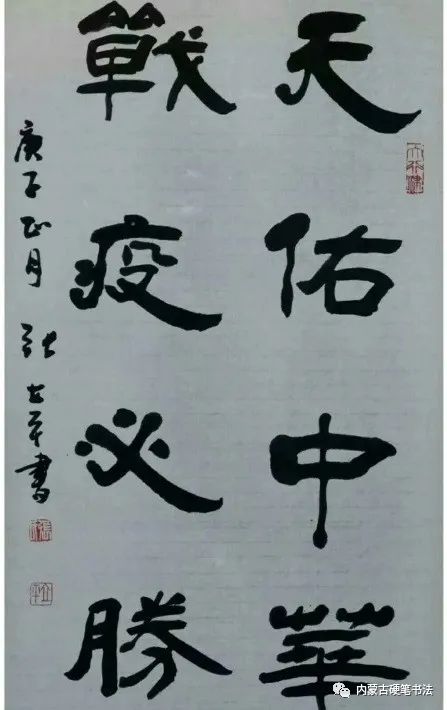 天佑中華
戰疫必勝
庚子正月 張在平書
内蒙古硬笔书法